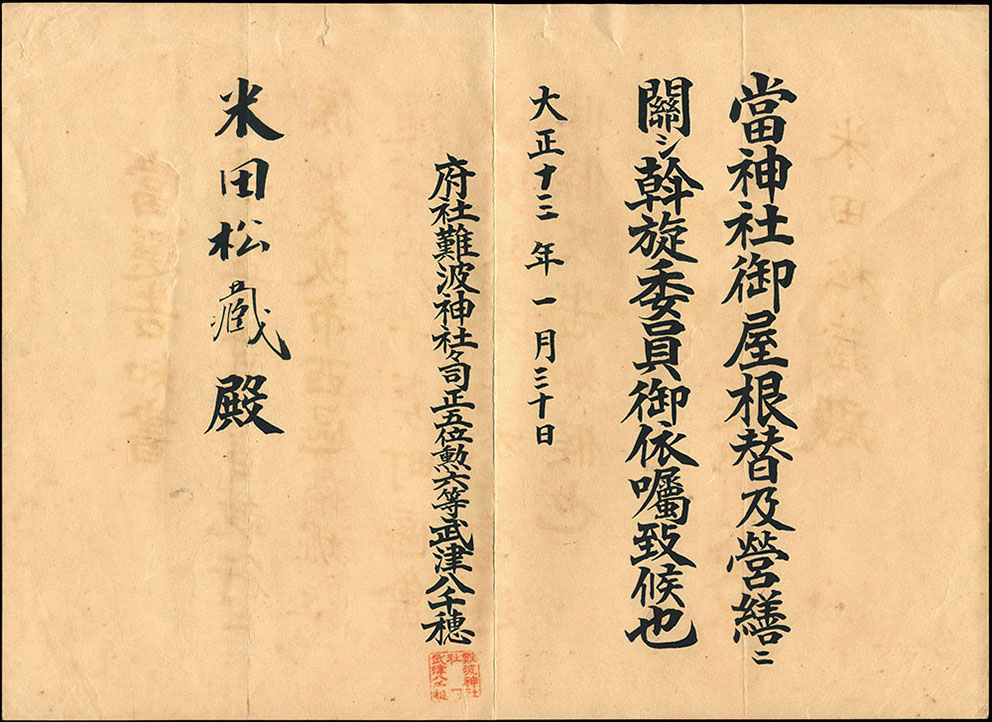 當神社御屋根替及營繕ニ
關シ斡旋委員御依囑致候也
大正十三年一月三十日
府社難波神社々司正五位勲六等武津八千穂
難波神社
社司
武津八千穂
米田松蔵殿